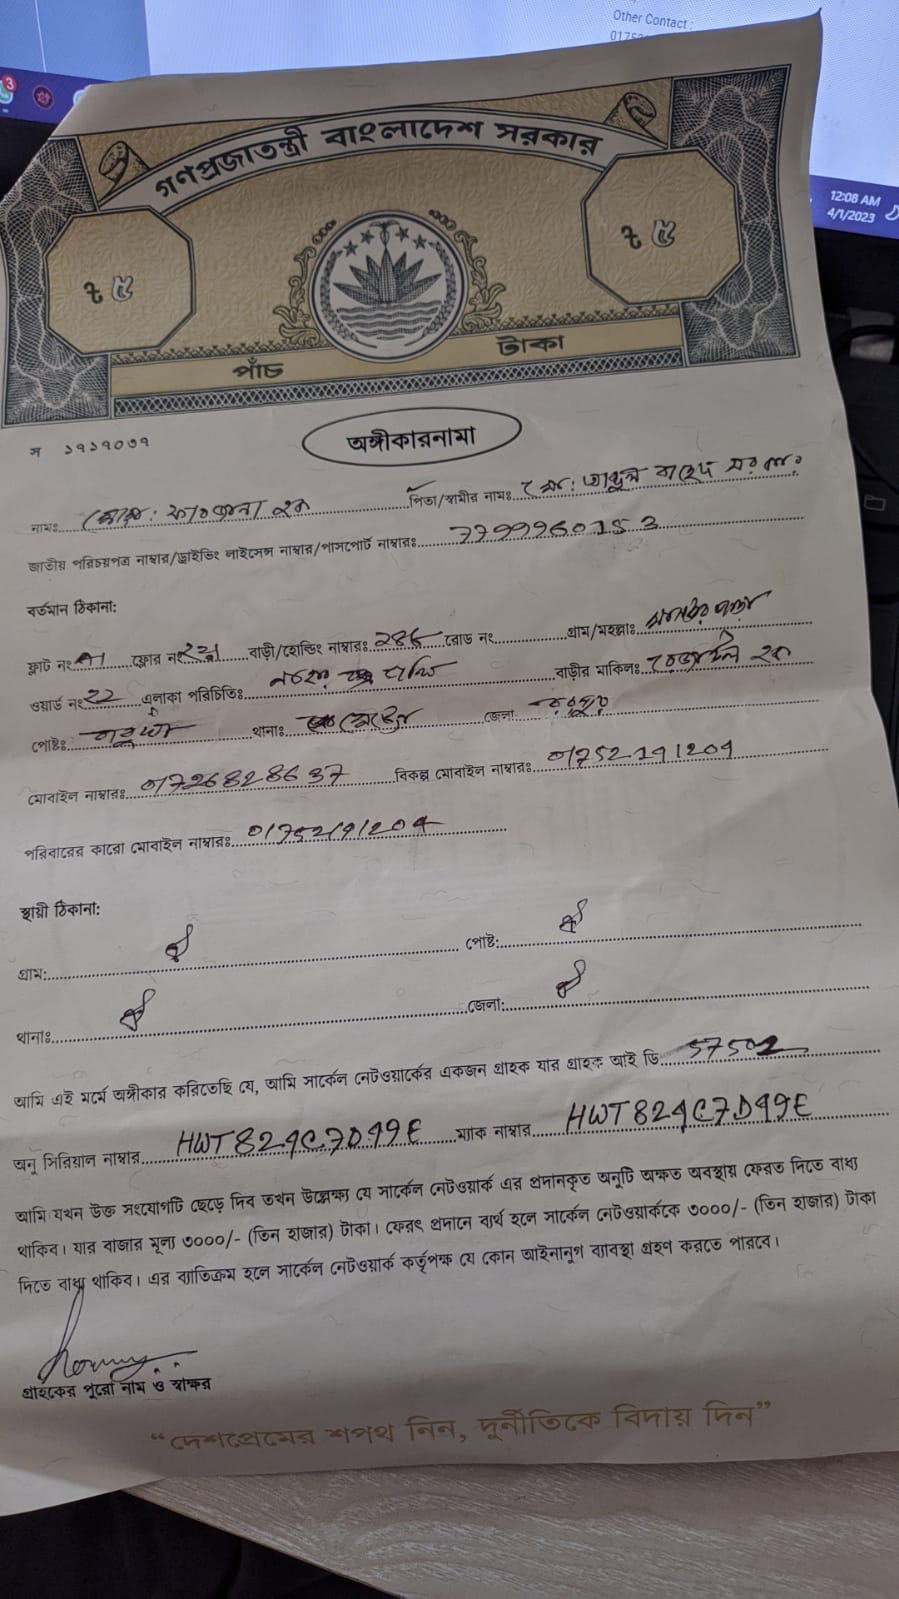 Other Contact :
3
12:08 AM
4/1/2023
গণপ্রজাতন্ত্রী বাংলাদেশ সরকার
৳ ৫
৳ ৫
পাঁচ টাকা
স ১৯১৭০৩৭
অঙ্গীকারনামা
নামঃ মোছাঃ হক পিতা/স্বামীর নামঃ মোঃ
জাতীয় পরিচয়পত্র নাম্বার/ড্রাইভিং লাইসেন্স নাম্বার/পাসপোর্ট নাম্বারঃ 7799960153
বর্তমান ঠিকানা:
ফ্লাট নং ফ্লোর নং বাড়ী/হোল্ডিং নাম্বারঃ রোড নং গ্রাম/মহল্লাঃ
ওয়ার্ড নং 22 এলাকা পরিচিতিঃ বাড়ীর মালিকঃ হক
পোষ্টঃ থানাঃ জেলা রংপুর
মোবাইল নাম্বারঃ 01726828637 বিকল্প মোবাইল নাম্বারঃ 01752191209
পরিবারের কারো মোবাইল নাম্বারঃ
স্থায়ী ঠিকানা:
গ্রাম: ঐ পোষ্ট: ঐ
থানাঃ ঐ জেলা: ঐ
আমি এই মর্মে অঙ্গীকার করিতেছি যে, আমি সার্কেল নেটওয়ার্কের একজন গ্রাহক যার গ্রাহক আই ডি 57502
অনু সিরিয়াল নাম্বার HWT829C7D99E ম্যাক নাম্বার HWT829C7D99E
আমি যখন উক্ত সংযোগটি ছেড়ে দিব তখন উল্লেক্ষ্য যে সার্কেল নেটওয়ার্ক এর প্রদানকৃত অনুটি অক্ষত অবস্থায় ফেরত দিতে বাধ্য
থাকিব। যার বাজার মূল্য ৩০০০/- (তিন হাজার) টাকা। ফেরৎ প্রদানে ব্যর্থ হলে সার্কেল নেটওয়ার্ককে ৩০০০/- (তিন হাজার) টাকা
দিতে বাধ্য থাকিব। এর ব্যতিক্রম হলে সার্কেল নেটওয়ার্ক কর্তৃপক্ষ যে কোন আইনানুগ ব্যাবস্থা গ্রহণ করতে পারবে।
গ্রাহকের পুরো নাম ও স্বাক্ষর
“দেশপ্রেমের শপথ নিন, দুর্নীতিকে বিদায় দিন”